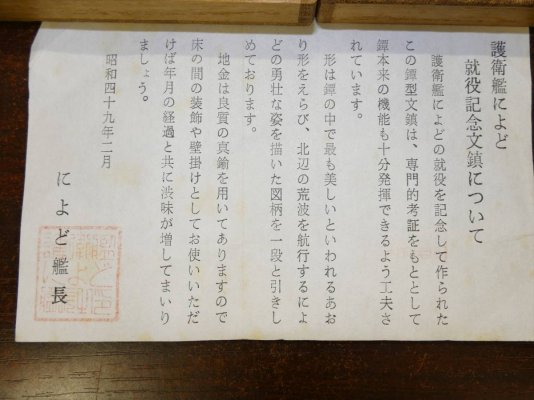 護衛艦によど
就役記念文鎮について
護衛艦によどの就役を記念して作られた
この鐔型文鎮は、専門的考証をもととして
鐔本来の機能も十分発揮できるよう工夫さ
れています。
形は鐔の中で最も美しいといわれるあお
り形をえらび、北辺の荒波を航行するによ
どの勇壮な姿を描いた図柄を一段と引きし
めております。
地金は良質の真鍮を用いてありますので
床の間の装飾や壁掛けとしてお使いいただ
けば年月の経過と共に渋味が増してまいり
ましょう。
昭和四十九年二月
によど艦長